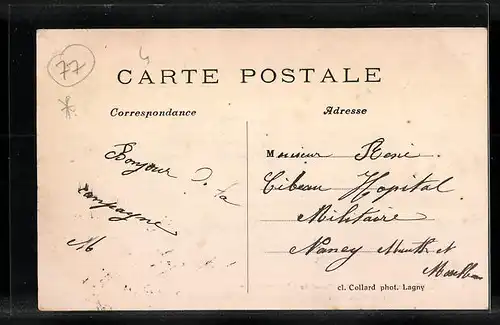 77
CARTE POSTALE
Correspondance
Adresse
Bonjour de la
campagne
M
Monsieur René
Cibeau Hopital
Militaire
Nancy Meurth et
Moselle
cl. Collard phot. Lagny